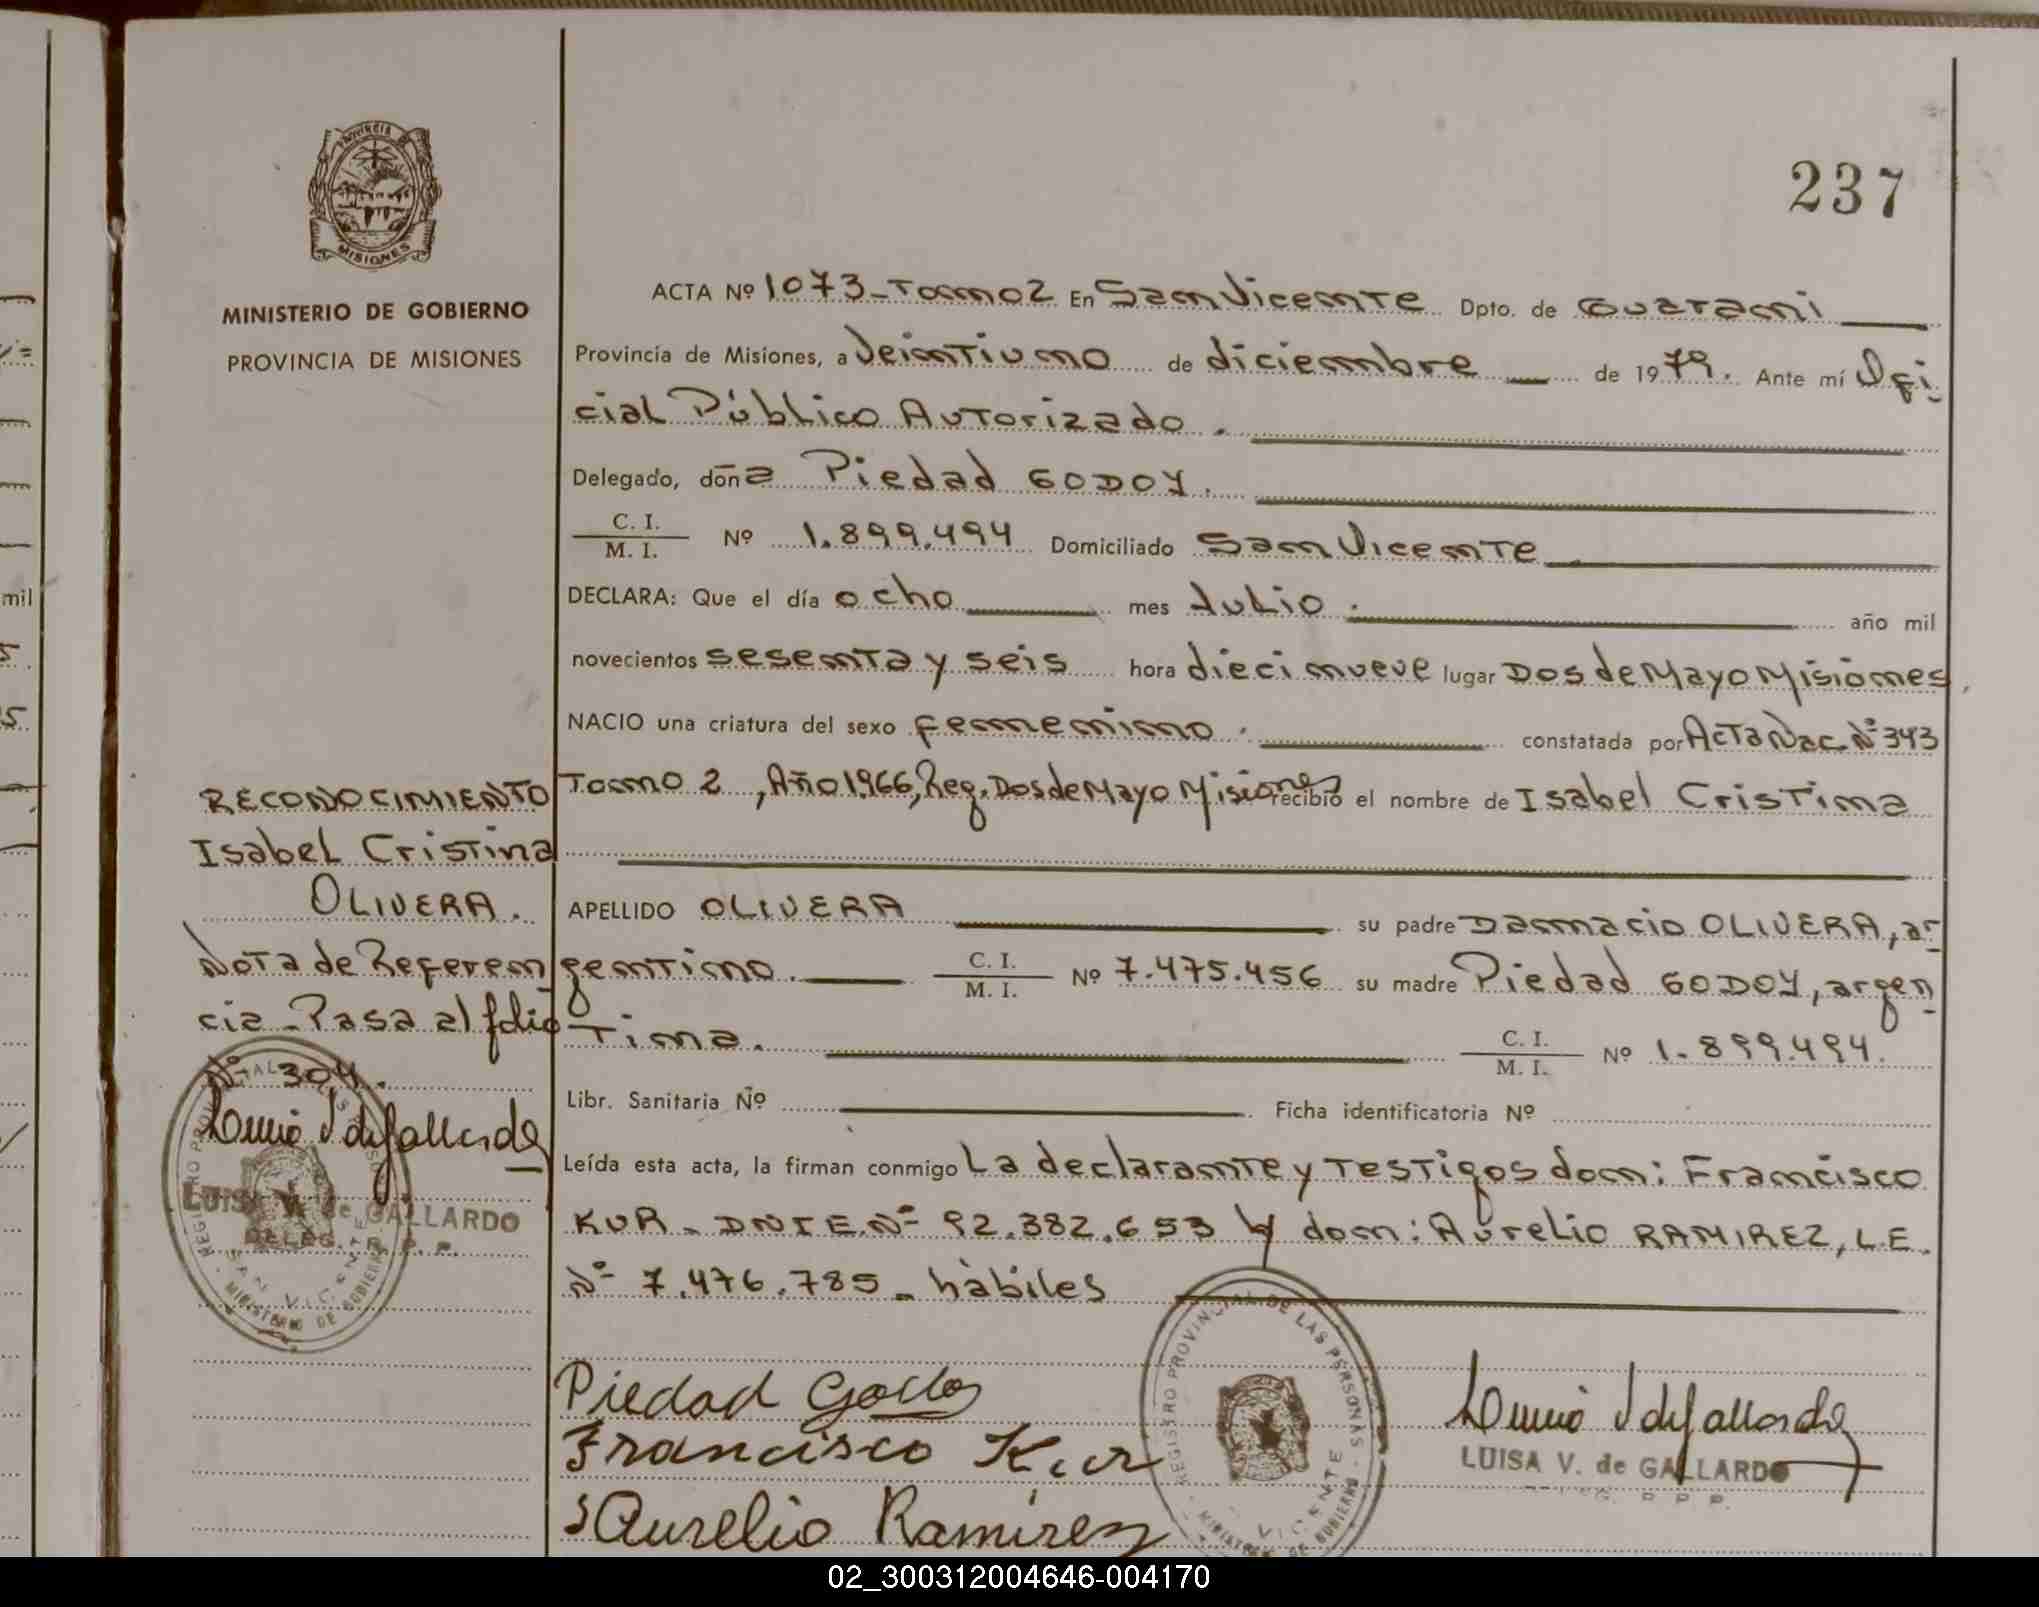 237
PROVINCIA DE
MISIONES
MINISTERIO DE GOBIERNO
PROVINCIA DE MISIONES
ACTA Nº 1073-Tomo 2 En San Vicente Dpto. de Guarani
Provincia de Misiones, a Veintiuno de diciembre de 1979. Ante mí Ofi
cial Público Autorizado.
Delegado, doña Piedad GODOY.
C. I.
M. I. Nº 1.899.494 Domiciliado San Vicente
DECLARA: Que el día ocho mes Julio. año mil
novecientos sesenta y seis hora diecinueve lugar Dos de Mayo Misiones,
NACIO una criatura del sexo femenino. constatada por Acta Nac. Nº 343
Tomo 2, Año 1966, Reg. Dos de Mayo Misiones recibió el nombre de Isabel Cristina
APELLIDO OLIVERA su padre Damacio OLIVERA, ar
gentino. C. I.
M. I. Nº 7.475.456 su madre Piedad GODOY, argen
tina. C. I.
M. I. Nº 1.899.494.
Libr. Sanitaria Nº Ficha identificatoria Nº
Leída esta acta, la firman conmigo La declarante y Testigos don: Francisco
KUR - DNIE. Nº 92.382.653 y don: Aurelio RAMIREZ, L.E.
Nº 7.476.785 - hábiles
Piedad Godoy
Francisco Kur
Aurelio Ramirez
REGISTRO PROVINCIAL DE LAS PERSONAS
MINISTERIO DE GOBIERNO
LUISA V. de GALLARDO
RECONOCIMIENTO
Isabel Cristina
OLIVERA.
Nota de Referen
cia - Pasa al folio
Nº 304.
LUISA V. de GALLARDO
DELEG. R. P. P.
SAN VICENTE
MINISTERIO DE GOBIERNO
mil
02_300312004646-004170